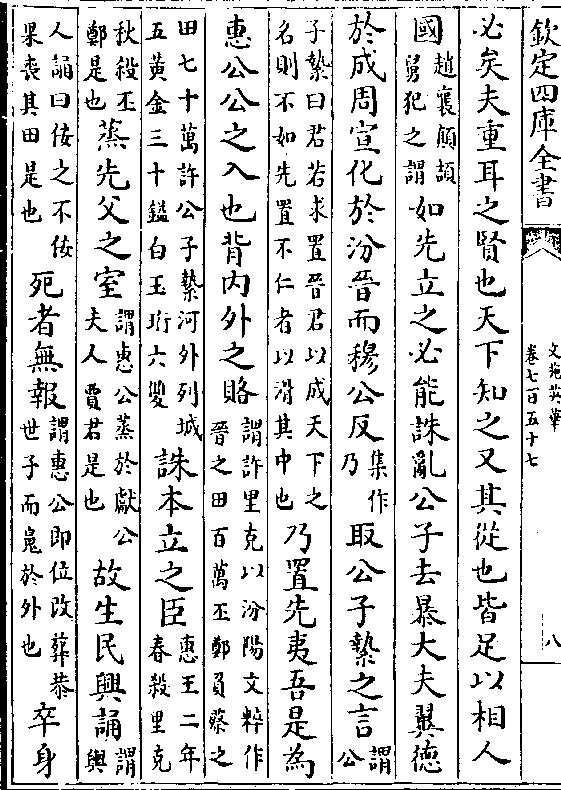 欽定四庫全書
文苑英華
卷七百五十七
八
必矣夫重耳之賢也天下知之又其從也皆足以相人
國趙襄顛頡舅犯之謂如先立之必能誅亂公子去暴大夫翼德
於成周宣化於汾晉而穆公反集作乃取公子縶之言謂公
子縶曰君若求置晉君以成天下之名則不如先置不仁者以滑其中也乃置先夷吾是為
惠公公之入也背內外之賂謂許里克以汾陽文粹作晉之田百萬丕鄭負蔡之
田七十萬許公子縶河外列城五黃金三十鎰白玉珩六雙誅本立之臣惠王二年春殺里克
秋殺丕鄭是也蒸先父之室謂惠公蒸於獻公夫人賈君是也故生民興誦謂輿
人誦曰佞之不佞果喪其田是也死者無報謂惠公即位改葬恭世子而臭於外也卒身